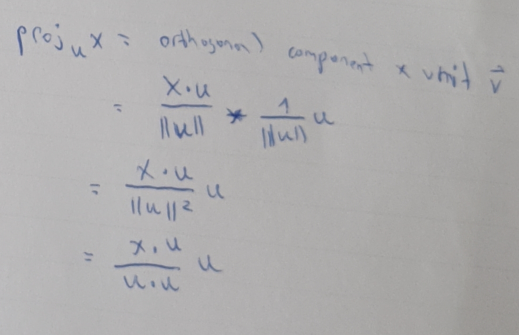 proj_u x = orthogonal component * unit v⃗
= x·u / ||u|| * 1 / ||u|| u
= x·u / ||u||² u
= x·u / u·u u